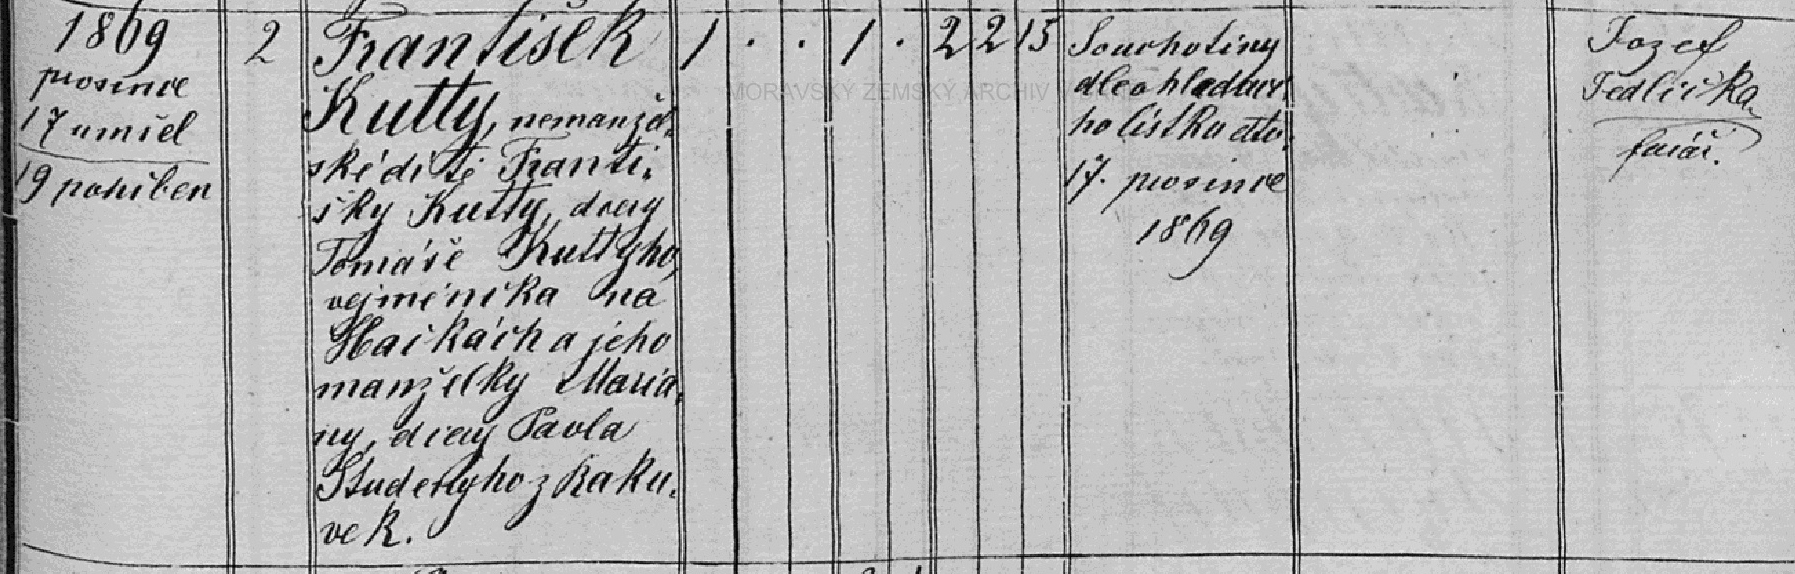 1869
prosince
17 umřel
19 pohřben
2
František
Kutty, nemanžel-
ské dítě Franti-
šky Kutty, dcery
Tomáše Kuttyho,
vejměníka na
Hačkách a jeho
manželky Maria-
ny, dcery Pavla
Studenyho z Raku-
vek.
1 . . 1 . 2 2 15
Souchotiny
dle ohledací-
ho lístku dto.
17. prosince
1869
Jozef
Jedlička
farář.
MORAVSKÝ ZEMSKÝ ARCHIV V